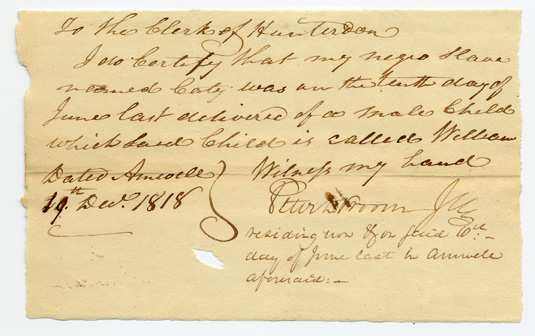 To the Clerk of Hunterdon
I do Certify that my negro Slave
named Caty was on the tenth day of
June last delivered of a male Child
which said Child is called William
Dated Amwell } Witness my hand
19th Decr. 1818
Peter D Vroom
residing now & on said 10th
day of June last in Amwell
aforesaid:-